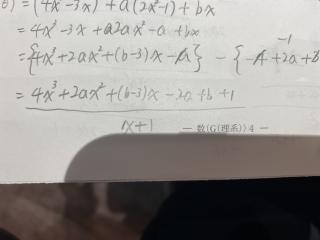 θ) = (4x³-3x) + a(2x²-1) + bx
= 4x³-3x + a2ax²-a+bx
= {4x³+2ax²+(b-3)x - a} - {-4+2a+3 -1
= 4x³+2ax²+(b-3)x-2a+b+1
x+1
— 数(G(理系)) 4 —